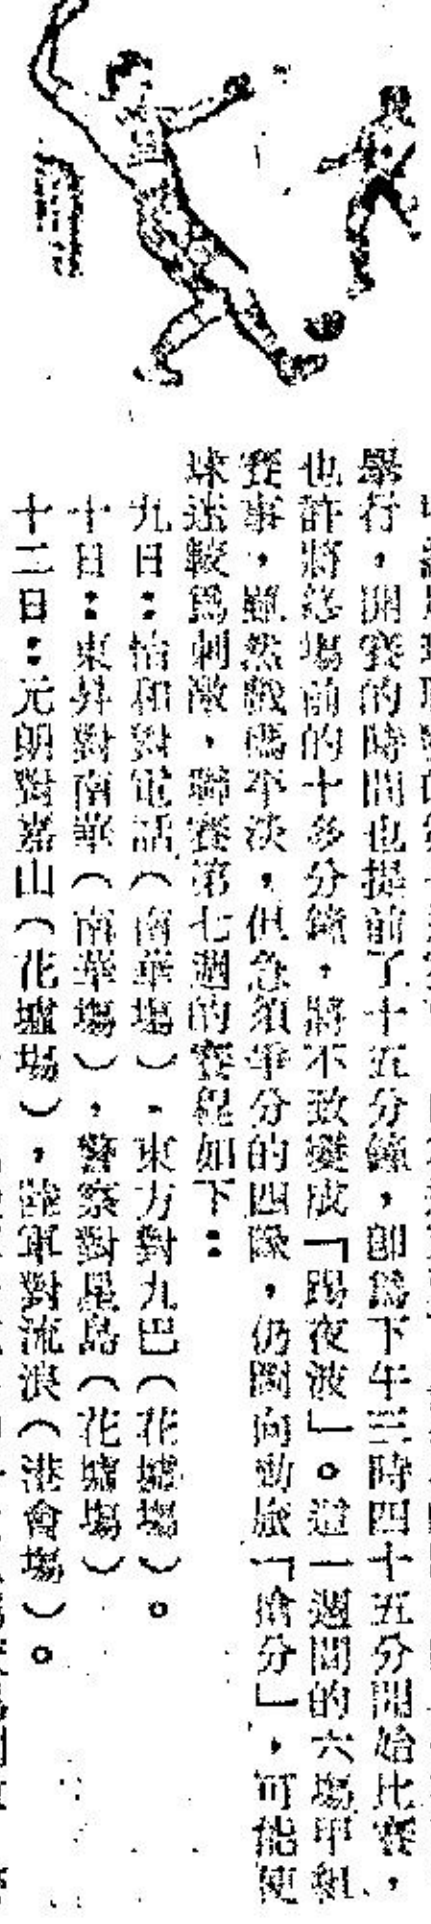 舉行，開賽的時間也提前了十五分鐘，卽爲下午三時四十五分開始比賽，
也許將終場前的十多分鐘，將不致變成「踢夜波」。這一週間的六場甲組
賽事，雖然戲碼平淡，但急須爭分的四隊，仍圖向動旅「搶分」，可能使
球迷較爲刺激，聯賽第七週的賽程如下：
九日：怡和對電話（南華塲）、東方對九巴（花墟塲）。
十日：東昇對南華（南華塲），警察對星島（花墟塲）
十二日：元朗對嘉山（花墟塲），陸軍對流浪（港會塲）。